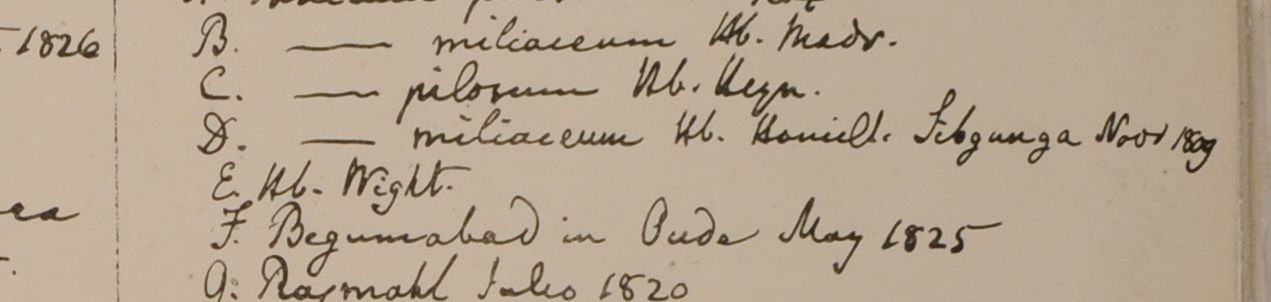 1826
B. — miliaceum Hb. Madr.
C. — pilosum Hb. Heyn.
D. — miliaceum Hb. Hamilt. Sibgunga Novr 1809
E. Hb. Wight.
rea
F. Begumabad in Oude May 1825
G. Rajmahl Julio 1820